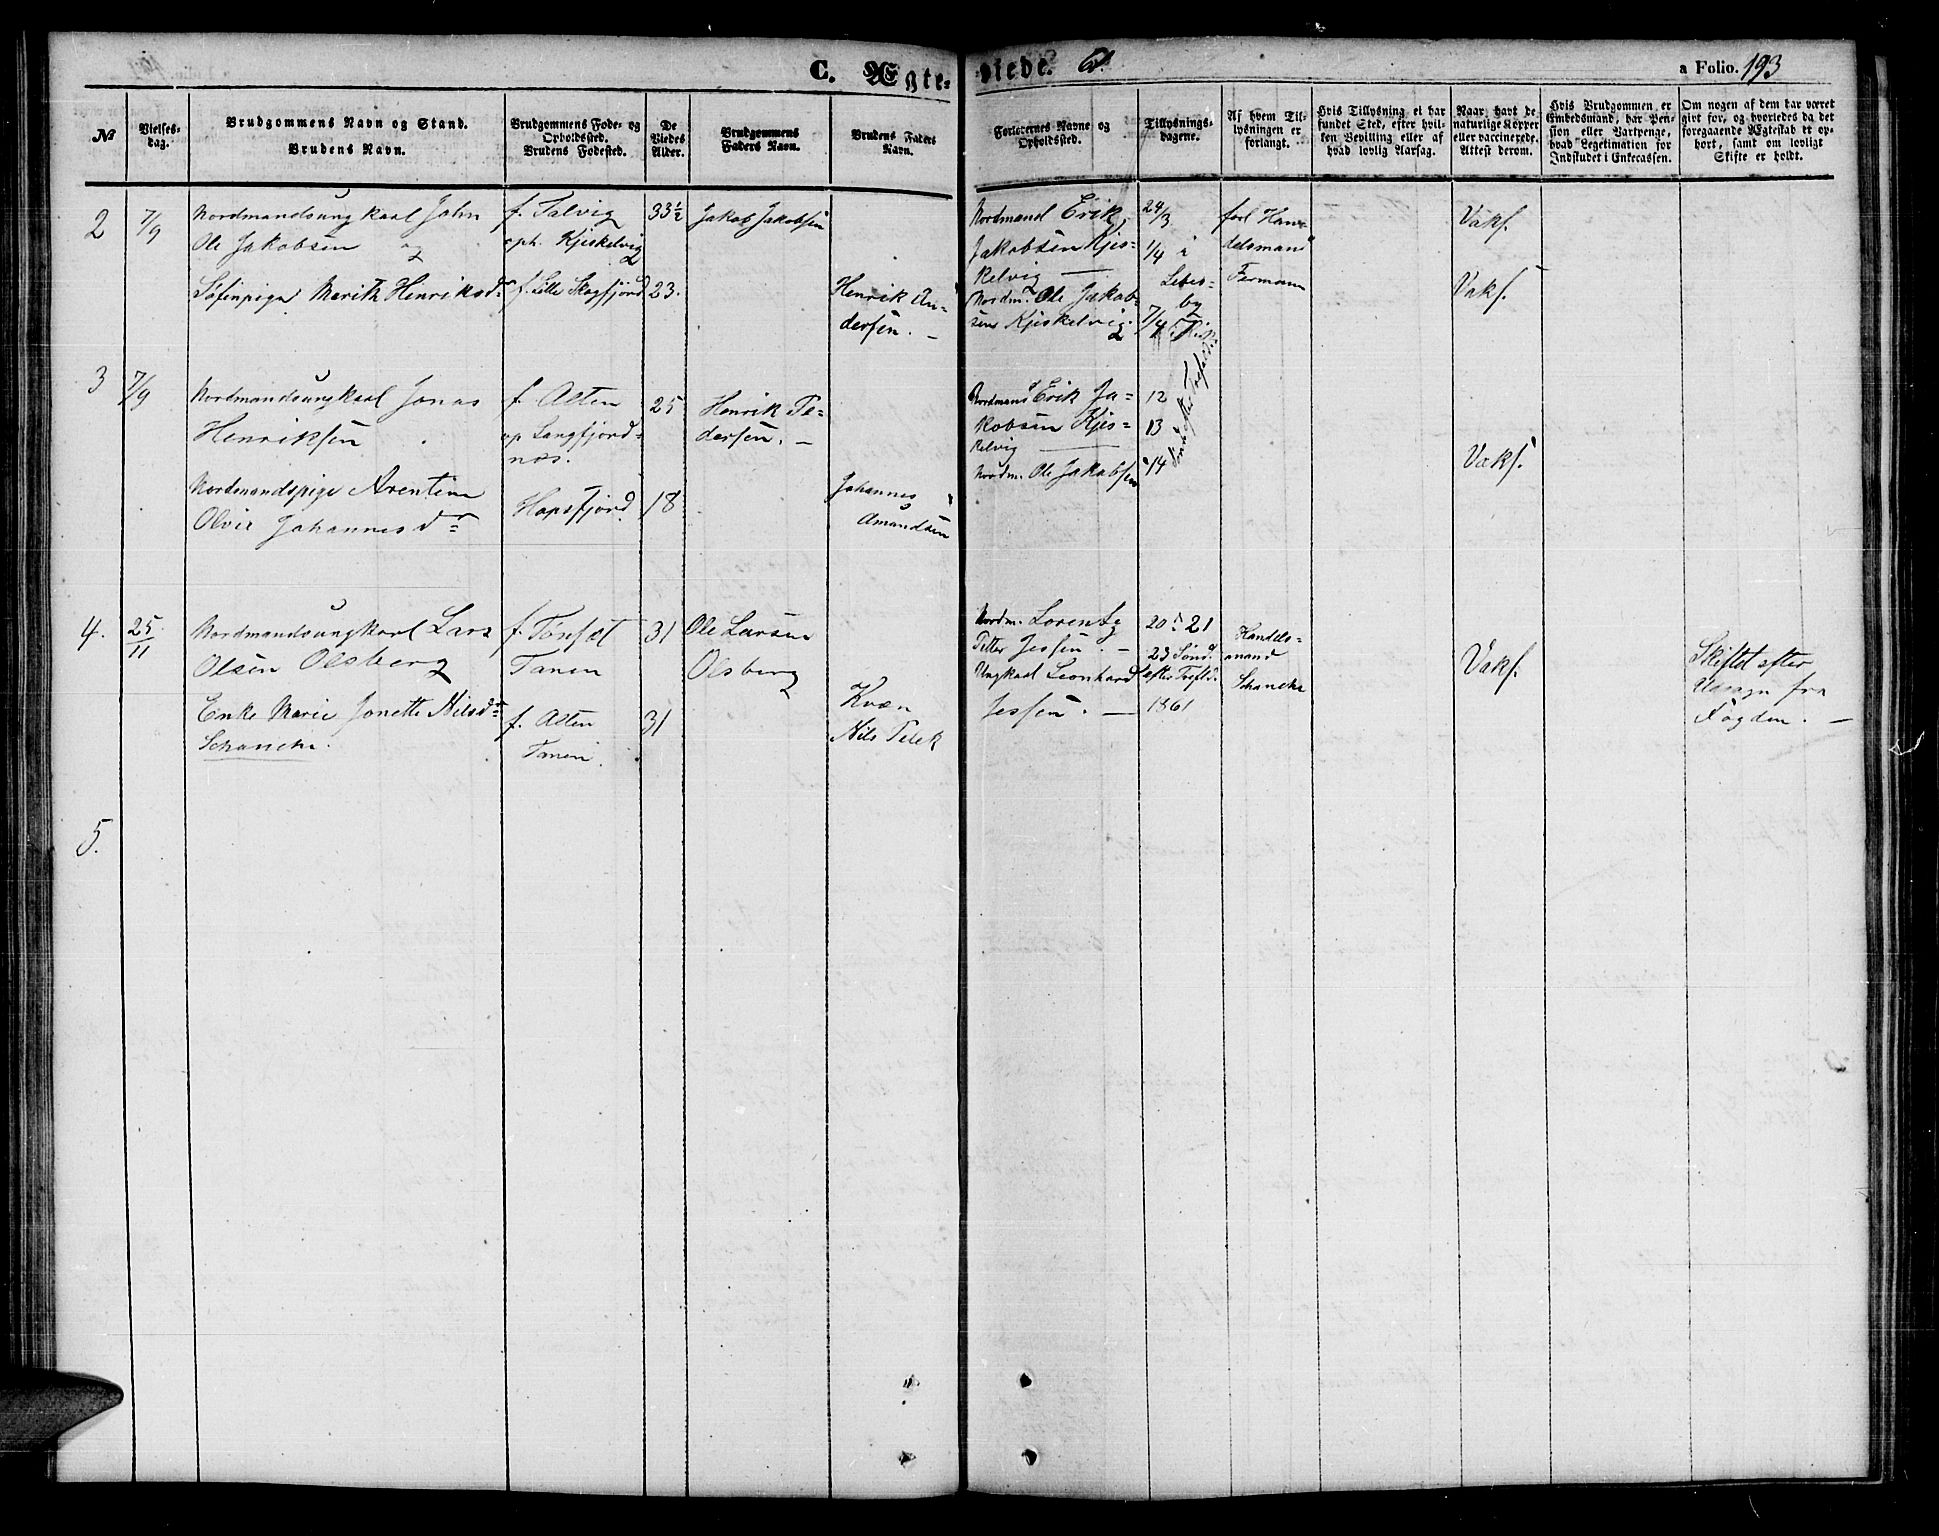 C. Ægte-
viede. 61.
a Folio. 193
No
Vielses-
dag.
Brudgommens Navn og Stand.
Brudens Navn.
Brudgommens Føde- og
Opholdssted.
Brudens Fødested.
De
Viedes
Alder.
Brudgommens
Faders Navn.
Brudens Faders
Navn.
Forlovernes Navne og
Opholdssted.
Tillysnings-
dagene.
Af hvem Til-
lysningen er
forlangt.
Hvis Tillysning ei har
fundet Sted, efter hvil-
ken Bevilling eller af
hvad lovlig Aarsag.
Naar, havt de
naturlige Kopper
eller vaccinerede.
Attest derom.
Hvis Brudgommen er
Embedsmand, har Pen-
sion eller Vartpenge,
hvad Legitimation for
Indskudet i Enkecassen.
Om nogen af dem har været
gift før, og hvorledes da det
foregaaende Ægteskab er op-
hørt, samt om lovligt
Skifte er holdt.
2
7/9
Nordmandsungkarl John
Ole Jakobsen og
Søfinpige Marith Henriksdr
f. Talvig
oph. Kjeskelvig
f. Lille Skogfjord
33½
23.
Jakob Jakobsen
Henrik An-
dersen. —
Nordmand Erik
Jakobsen Kjes-
kelvig —
Nordm. Ole Jakob-
sen Kjeskelvig.
24/3
1/4 i
Lebes-
by
7/4
forl Han-
delsmand
Fermann
Vakf.
Vakf.
3
7/9
Nordmandsungkarl Jonas
Henriksen
Nordmandspige Arentine
Olvie Johannesdr
f. Alten
op Langfjord-
næs.
Hopsfjord
25
18
Henrik Pe-
dersen. —
Johannes
Amundsen
Nordmand Erik Ja-
kobsen Kjes-
kelvig —
Nordm. Ole Jakobsen
12
13
14 Sønd efter Trefold.
Vakf.
4.
25/11
Nordmandsungkarl Lars
Olsen Olsberg
Enke Marie Jonette Nilsdr
Schanche.
f. Tønset
Tanen
f. Alten
Tanen.
31
31
Ole Larsen
Olsberg
Kvæn
Nils Pelek
Nordm. Lorentz
Petter Jessen. —
Ungkarl Leonhard
Jessen. —
20 21
23 Sønd.
efter Trefld.
1861
Handels-
mand
Schanche
Vakf.
Skiftet efter
Udsagn fra
Fogden. —
5.